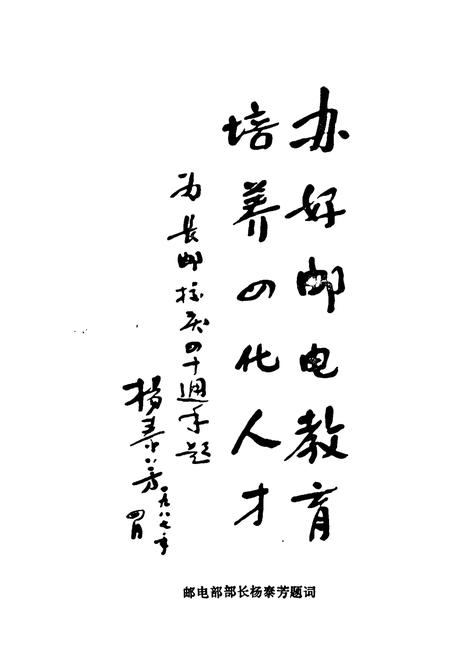 办好邮电教育
培养四化人才
为长邮校庆四十週年题
杨泰芳
一九八七年
四月
邮电部部长杨泰芳题词